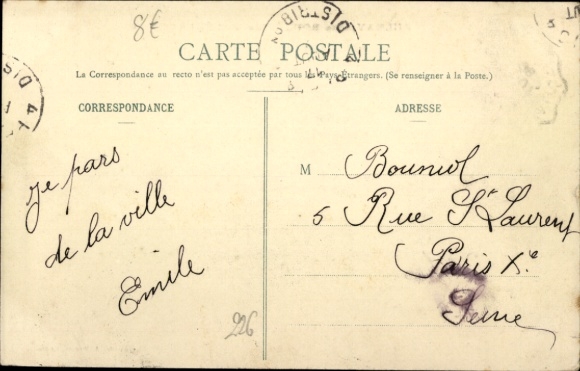 8€
CARTE POSTALE
La Correspondance au recto n'est pas acceptée par tous les Pays Étrangers. (Se renseigner à la Poste.)
CORRESPONDANCE
Je pars
de la ville
Emile
226
ADRESSE
M Bouniol
5 Rue St Laurent
Paris Xe
Seine
DISTRIB